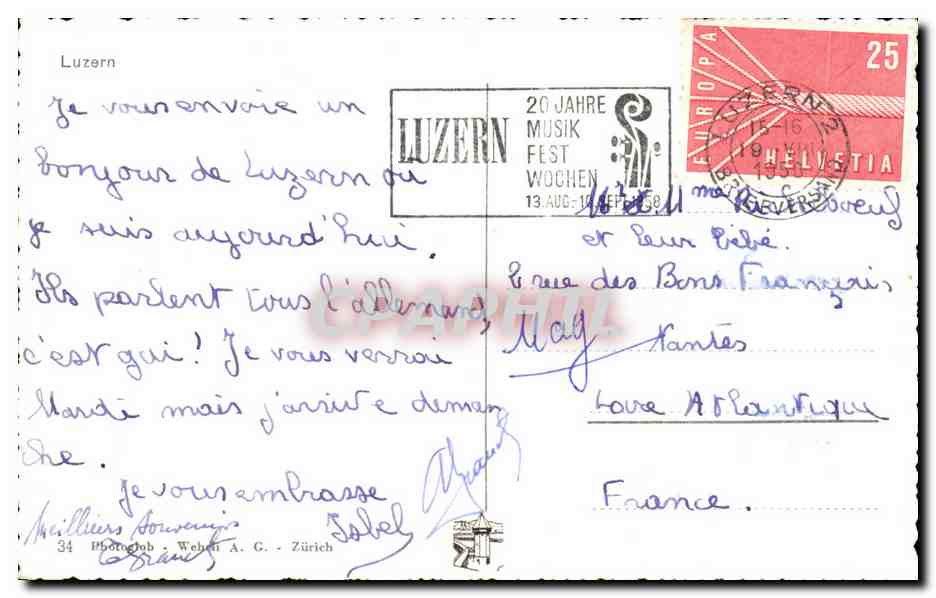 Luzern
Je vous envoie un
bonjour de Luzern où
je suis aujourd'hui.
Ils parlent tous l'allemand,
c'est gai! Je vous verrai
Mardi mais j'arrive deman
che.
Je vous embrasse
Isbel
Meilliurs Souvenirs
34 Photoglob - Wehrli A. G. - Zürich
LUZERN
20 JAHRE
MUSIK
FEST
WOCHEN
13. AUG.-10. SEPT. 1958
EUROPA
25
HELVETIA
LUZERN 2
15-16
19. VIII
1958
BRIEFVERSAND
Mr & Mme
et leur bébé.
rue des Bons Français
Nantes
Loire Atlantique
France.
CPAPHIL